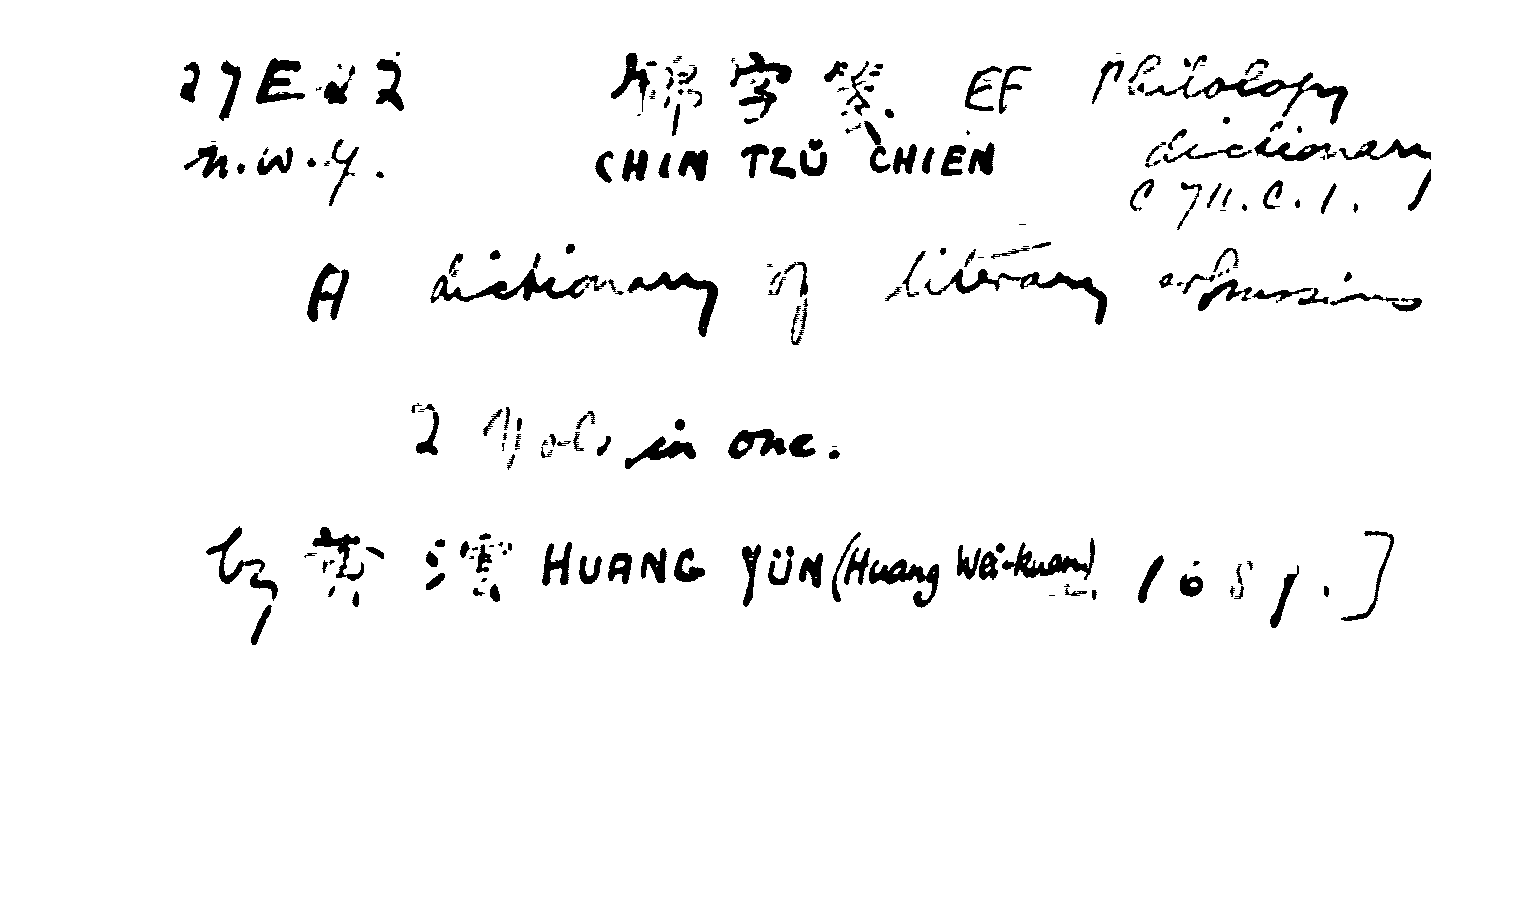 字箋 EF Philology
N.W.Y. CHIN TZŬ CHIEN dictionary
C 711.C.1.
A dictionary of literary expressions
2 Vols in one.
by 黄澐 HUANG YÜN (Huang Wei-kuan) 1689.]